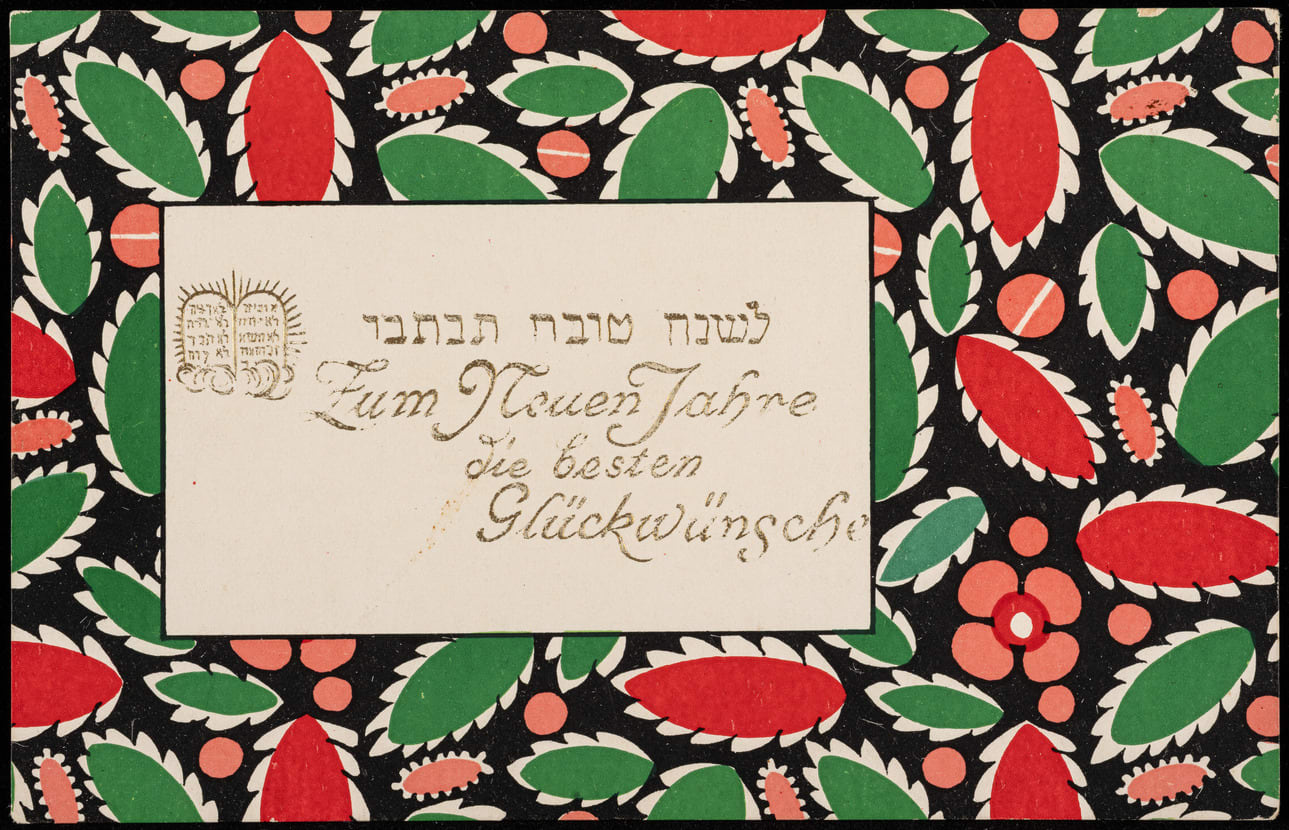 לשנה טובה תכתבו
Zum Neuen Jahre
die besten
Glückwünsche